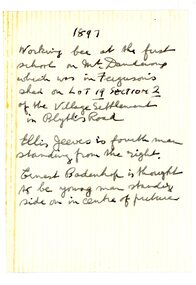 1897
Working bee at the first
school on Mt. Dandenong
which was in Ferguson's
shed on LOT 19 Section 2
of the Village Settlement
in Blyth's Road
Ellis Jeeves is fourth man
standing from the right.
Ernest Badenhop is thought
to be young man standing
side on in centre of picture